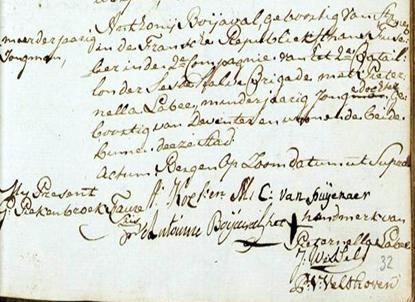 meerderjarig
Jongman,
Anthonij Boijaval geboortig van
in de Fransche Republiek thans fuse-
lier in de Compagnie van het 2e Batail-
lon der Sesde halve Brigade met Pieter-
nella Labee, minderjarig Jongedogter ge-
boortig van Deventer en wonende beide
binnen deeze Stad.
Actum Bergen Op Zoom datum ut Supra
My Present
Piekenbroek Faure
M: C: van Huijenaer
Antoinne
handmerk van
Pieternella Labee
32
Velthoven